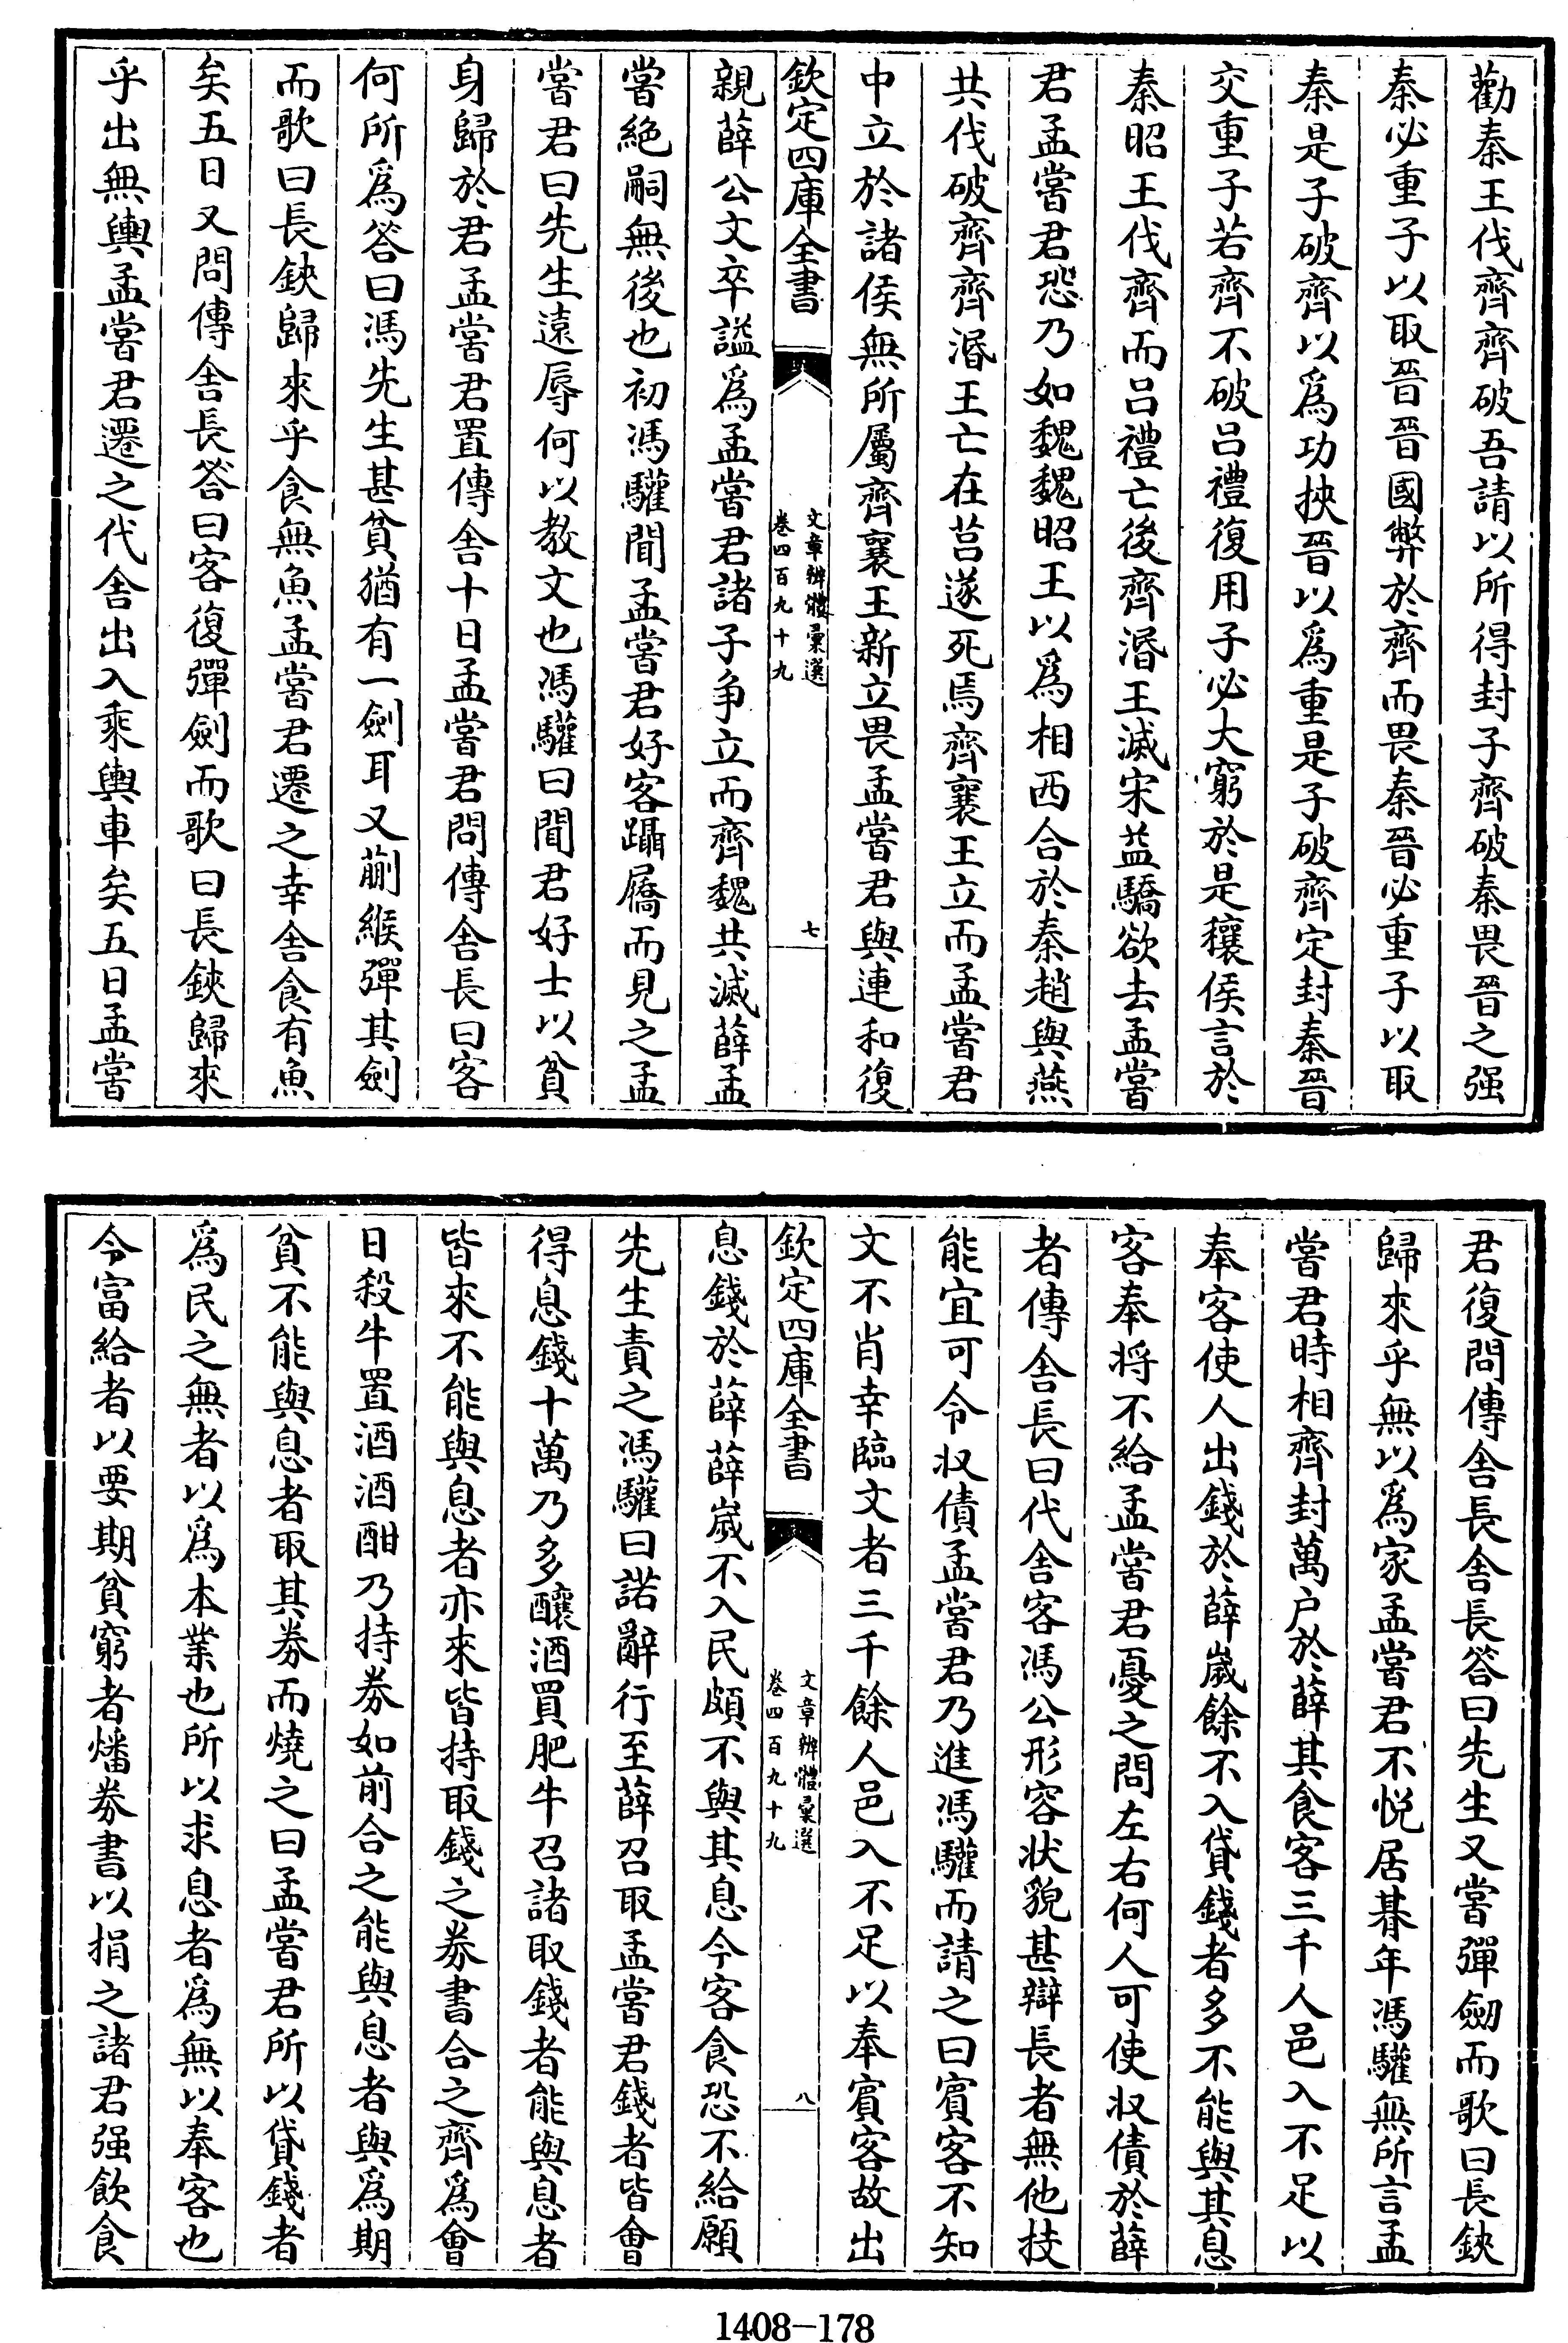 勸秦王伐齊齊破吾請以所得封子齊破秦畏晉之强
秦必重子以取晉晉國弊於齊而畏秦晉必重子以取
秦是子破齊以爲功挾晉以爲重是子破齊定封秦晉
交重子若齊不破吕禮復用子必大窮於是穰侯言於
秦昭王伐齊而吕禮亡後齊湣王滅宋益驕欲去孟嘗
君孟嘗君恐乃如魏魏昭王以爲相西合於秦趙與燕
共伐破齊齊湣王亡在莒遂死焉齊襄王立而孟嘗君
中立於諸侯無所屬齊襄王新立畏孟嘗君與連和復
欽定四庫全書
文章辨體彙選
卷四百九十九
七
親薛公文卒諡爲孟嘗君諸子争立而齊魏共滅薛孟
嘗絶嗣無後也初馮驩聞孟嘗君好客躡屩而見之孟
嘗君曰先生遠辱何以教文也馮驩曰聞君好士以貧
身歸於君孟嘗君置傳舍十日孟嘗君問傳舍長曰客
何所爲答曰馮先生甚貧猶有一劍耳又蒯緱彈其劍
而歌曰長鋏歸來乎食無魚孟嘗君遷之幸舍食有魚
矣五日又問傳舍長答曰客復彈劍而歌曰長鋏歸來
乎出無輿孟嘗君遷之代舍出入乘輿車矣五日孟嘗
君復問傳舍長舍長答曰先生又嘗彈劒而歌曰長鋏
歸來乎無以爲家孟嘗君不悦居朞年馮驩無所言孟
嘗君時相齊封萬户於薛其食客三千人邑入不足以
奉客使人出錢於薛嵗餘不入貸錢者多不能與其息
客奉將不給孟嘗君憂之問左右何人可使收債於薛
者傳舍長曰代舍客馮公形容状貌甚辯長者無他技
能宜可令收債孟嘗君乃進馮驩而請之曰賓客不知
文不肖幸臨文者三千餘人邑入不足以奉賓客故出
欽定四庫全書
文章辨體彙選
卷四百九十九
八
息錢於薛薛嵗不入民頗不與其息今客食恐不給願
先生責之馮驩曰諾辭行至薛召取孟嘗君錢者皆會
得息錢十萬乃多釀酒買肥牛召諸取錢者能與息者
皆來不能與息者亦來皆持取錢之券書合之齊爲會
日殺牛置酒酒酣乃持券如前合之能與息者與爲期
貧不能與息者取其券而燒之曰孟嘗君所以貸錢者
爲民之無者以爲本業也所以求息者爲無以奉客也
令富給者以要期貧窮者燔券書以捐之諸君强飲食
1408-178